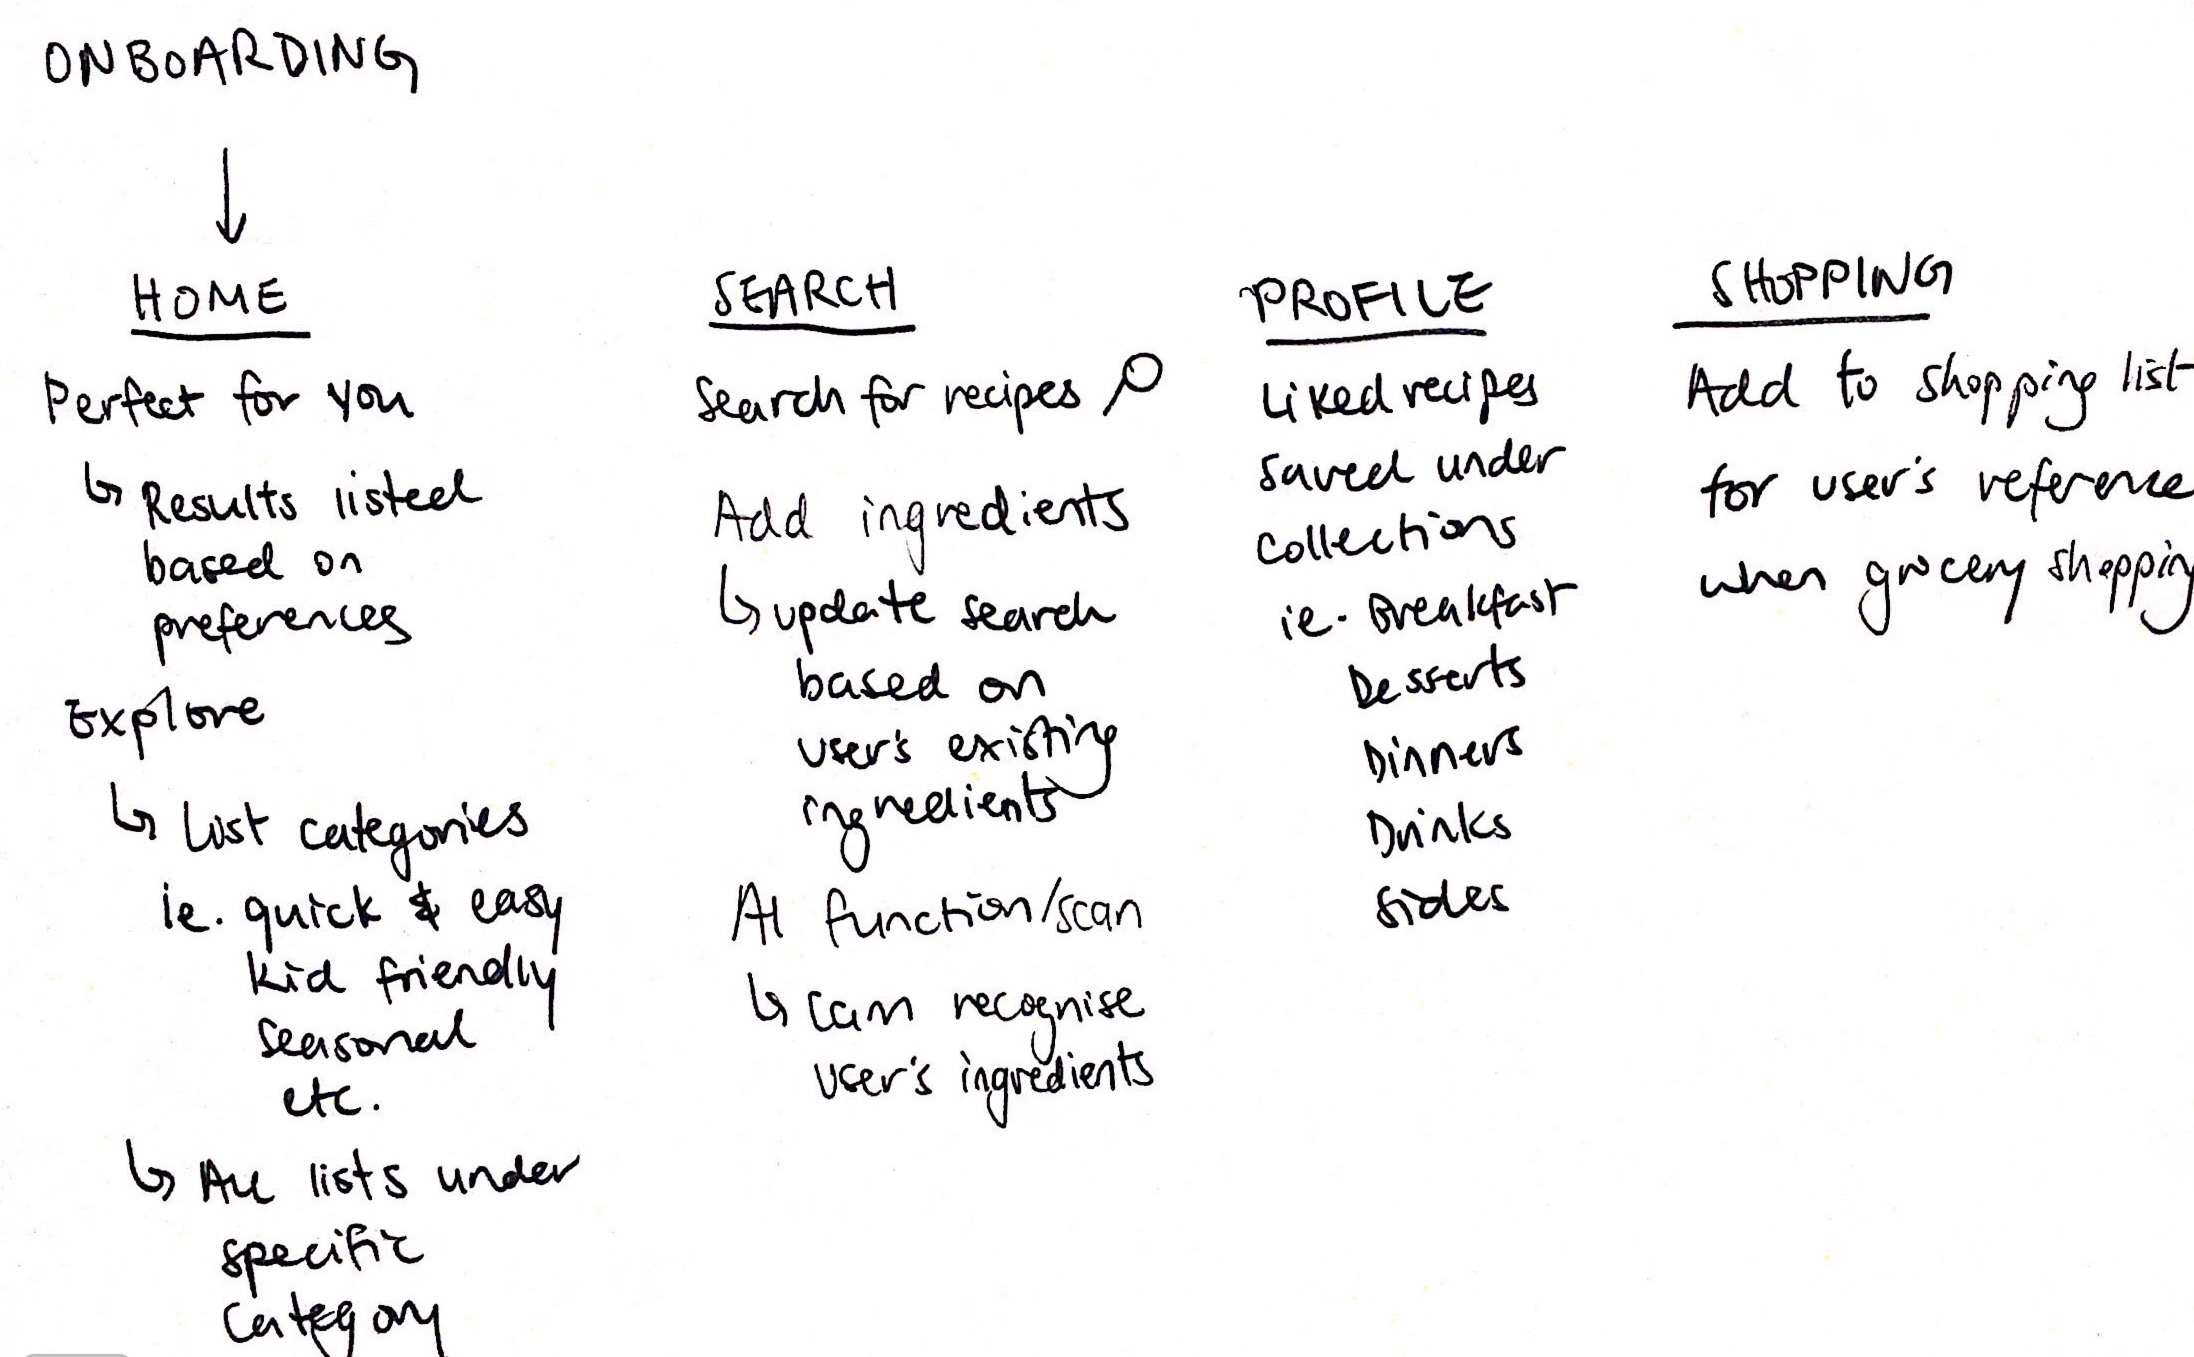 ONBOARDING
HOME
Perfect for you
Results listed
based on
preferences
Explore
List categories
ie. quick & easy
kid friendly
seasonal
etc.
All lists under
specific
category
SEARCH
Search for recipes
Add ingredients
update search
based on
user's existing
ingredients
AI function/scan
can recognise
user's ingredients
PROFILE
Liked recipes
saved under
collections
ie. Breakfast
Desserts
Dinners
Drinks
Sides
SHOPPING
Add to shopping list
for user's reference
when grocery shopping